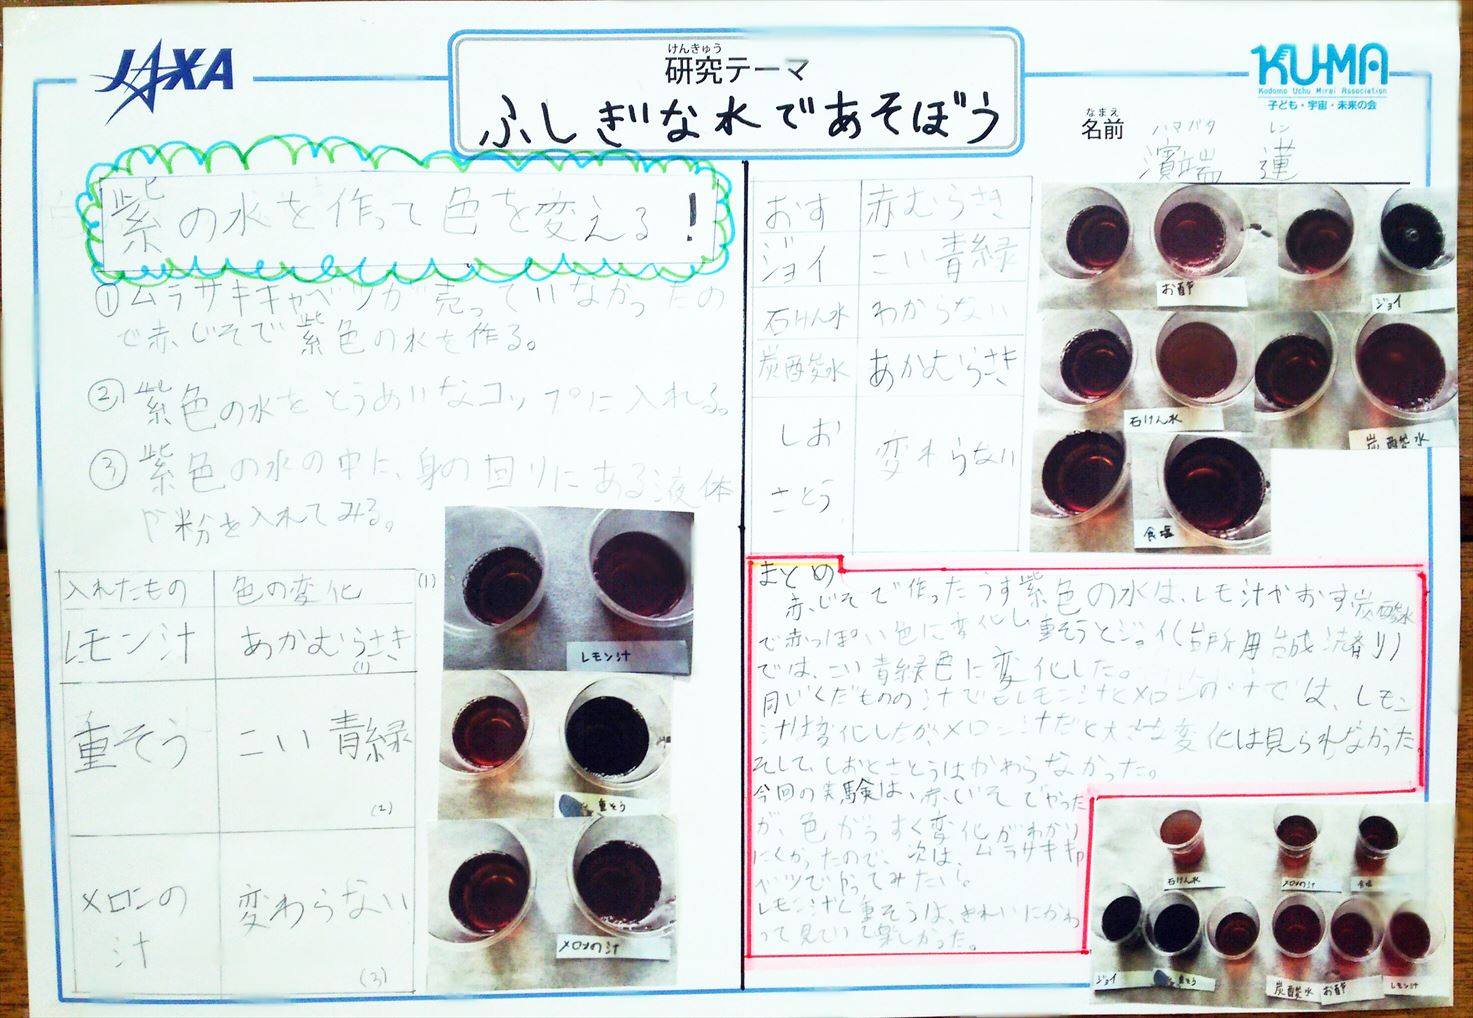 JAXA
けんきゅう
研究テーマ
ふしぎな水であそぼう
KU-MA
Kodomo Uchu Mirai Association
子ども・宇宙・未来の会
なまえ
名前
ハマバタ レン
濱端 蓮
紫の水を作って色を変える!
①ムラサキキャベツが売っていなかったの
で赤じそで紫色の水を作る。
②紫色の水をとうめいなコップに入れる。
③紫色の水の中に、身の回りにある液体
や粉を入れてみる。
入れたもの 色の変化
(1)
レモン汁 あかむらさき
(1)
重そう こい青緑
(2)
メロンの
汁
変わらない
(3)
レモン汁
重そう
メロンの汁
おす 赤むらさき
ジョイ こい青緑
石けん水 わからない
炭酸水 あかむらさき
しお
さとう
変わらない
お酢
ジョイ
石けん水
炭酸水
食塩
まとめ
赤じそで作ったうす紫色の水は、レモ汁やおす炭酸水
で赤っぽい色に変化し重そうとジョイ(台所用
では、こい青緑色に変化した。
同じくだものの汁でもレモン汁とメロンの汁では、レモン
汁は変化したが、メロン汁だと大きな変化は見られなかった。
そして、しおとさとうはかわらなかった。
今回の実験は、赤じそでやった
が、色がうすく変化がわかり
にくかったので、次は、ムラサキキャ
ベツでやってみたい。
レモン汁と重そうは、きれいにかわ
って見ていて楽しかった。
石けん水
メロンの汁
食塩
ジョイ
重そう
炭酸水
お酢
レモン汁